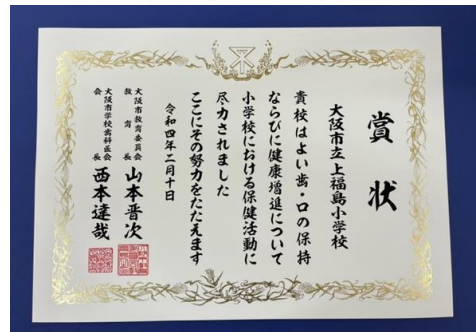 賞状
大阪市立上福島小学校
貴校はよい歯・口の保持
ならびに健康増進について
小学校における保健活動に
尽力されました
ここにその努力をたたえます
令和四年二月十日
大阪市教育委員会
教育長 山本晋次
大阪市学校歯科医会
会長 西本達哉